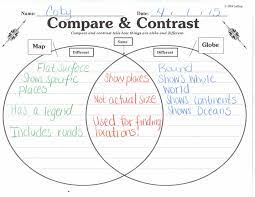 Name: Caty Date: 4/1/15
Compare & Contrast
Compare and contrast tells how things are alike and different.
Map Different Same Different Globe
Flat surface
Shows specific places
Has a legend
Includes roads
Show places
Not actual size
Used for finding locations!
Round
Shows whole world
Shows continents
Shows Oceans